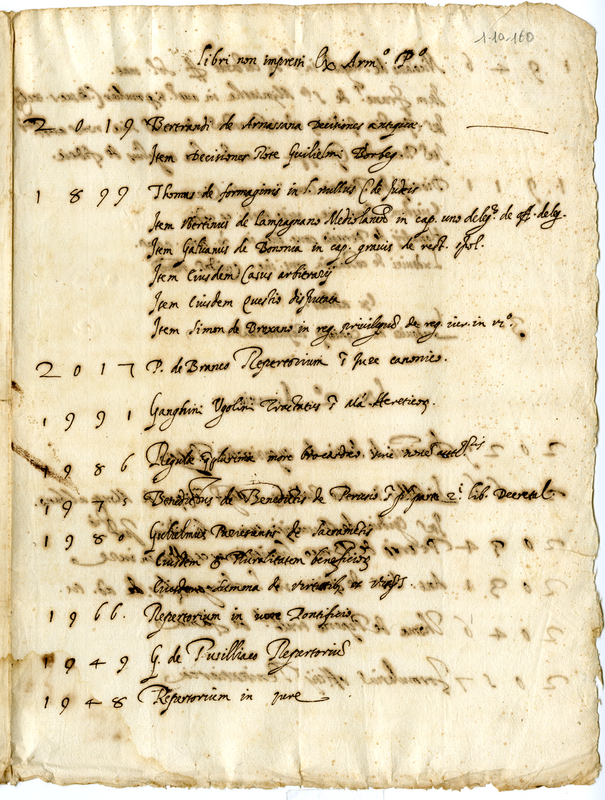 1-10-160
Libri non impressi Ex Arm.º P.º
2019 Bertrandi de Arnassana Decisiones antiquæ.
Item Decisiones Rote Guilielmi Borbez.
1899 Thomas de formaginis in l. nullus C. de Judeis
Item Ubertinus de Lampagnano Mediolanen in cap. uno deleg. de off. deleg.
Item Galuanus de Bononia in cap. grauis de rest. spol.
Item Eiusdem Casus arbitrarij
Item Eiusdem Questio disputata
Item Simon de Brexano in reg. priuilegiũ de reg. iur. in vi.º
2017 P. de Branco Repertorium ĩ Jure canonico.
1991 Ganghini Ugolini Tractatus Hereticoꝝ
1986 Regulæ more brocardico siue note
1975 Benedictus de Benedictis de Perusio parte 2.ª lib. Decretal.
1980 Guilielmus de sacramẽtis
Eiusdem Pluralitatem beneficioꝝ
Eiusdem summa de virtutib. et vitijs
1966. Repertorium in iure Pontificio
1949 G. de Pusilliaco Repertoriũ
1948 Repertorium in jure